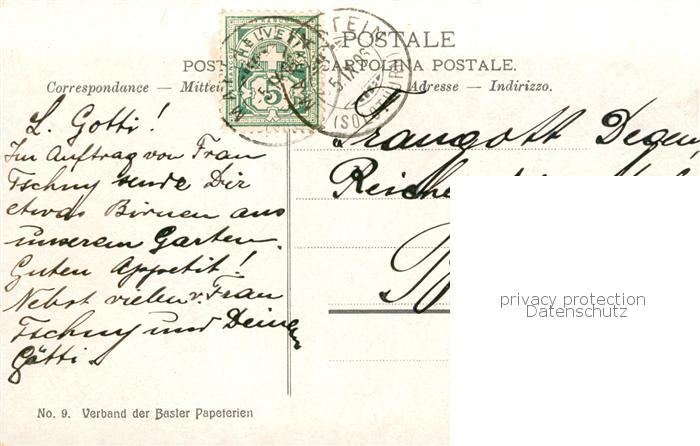 POSTALE
CARTOLINA POSTALE.
Correspondance — Mitteil
Adresse — Indirizzo.
HELVETIA
5
L. Gotti!
Im Auftrag von Frau
Tschuy sende Dir
etwas Birnen aus
unserem Garten.
Guten Appetit!
Nebst vielen v. Frau
Tschuy und Deinem
Götti.
Traugott Degen
privacy protection
Datenschutz
No. 9. Verband der Basler Papeterien